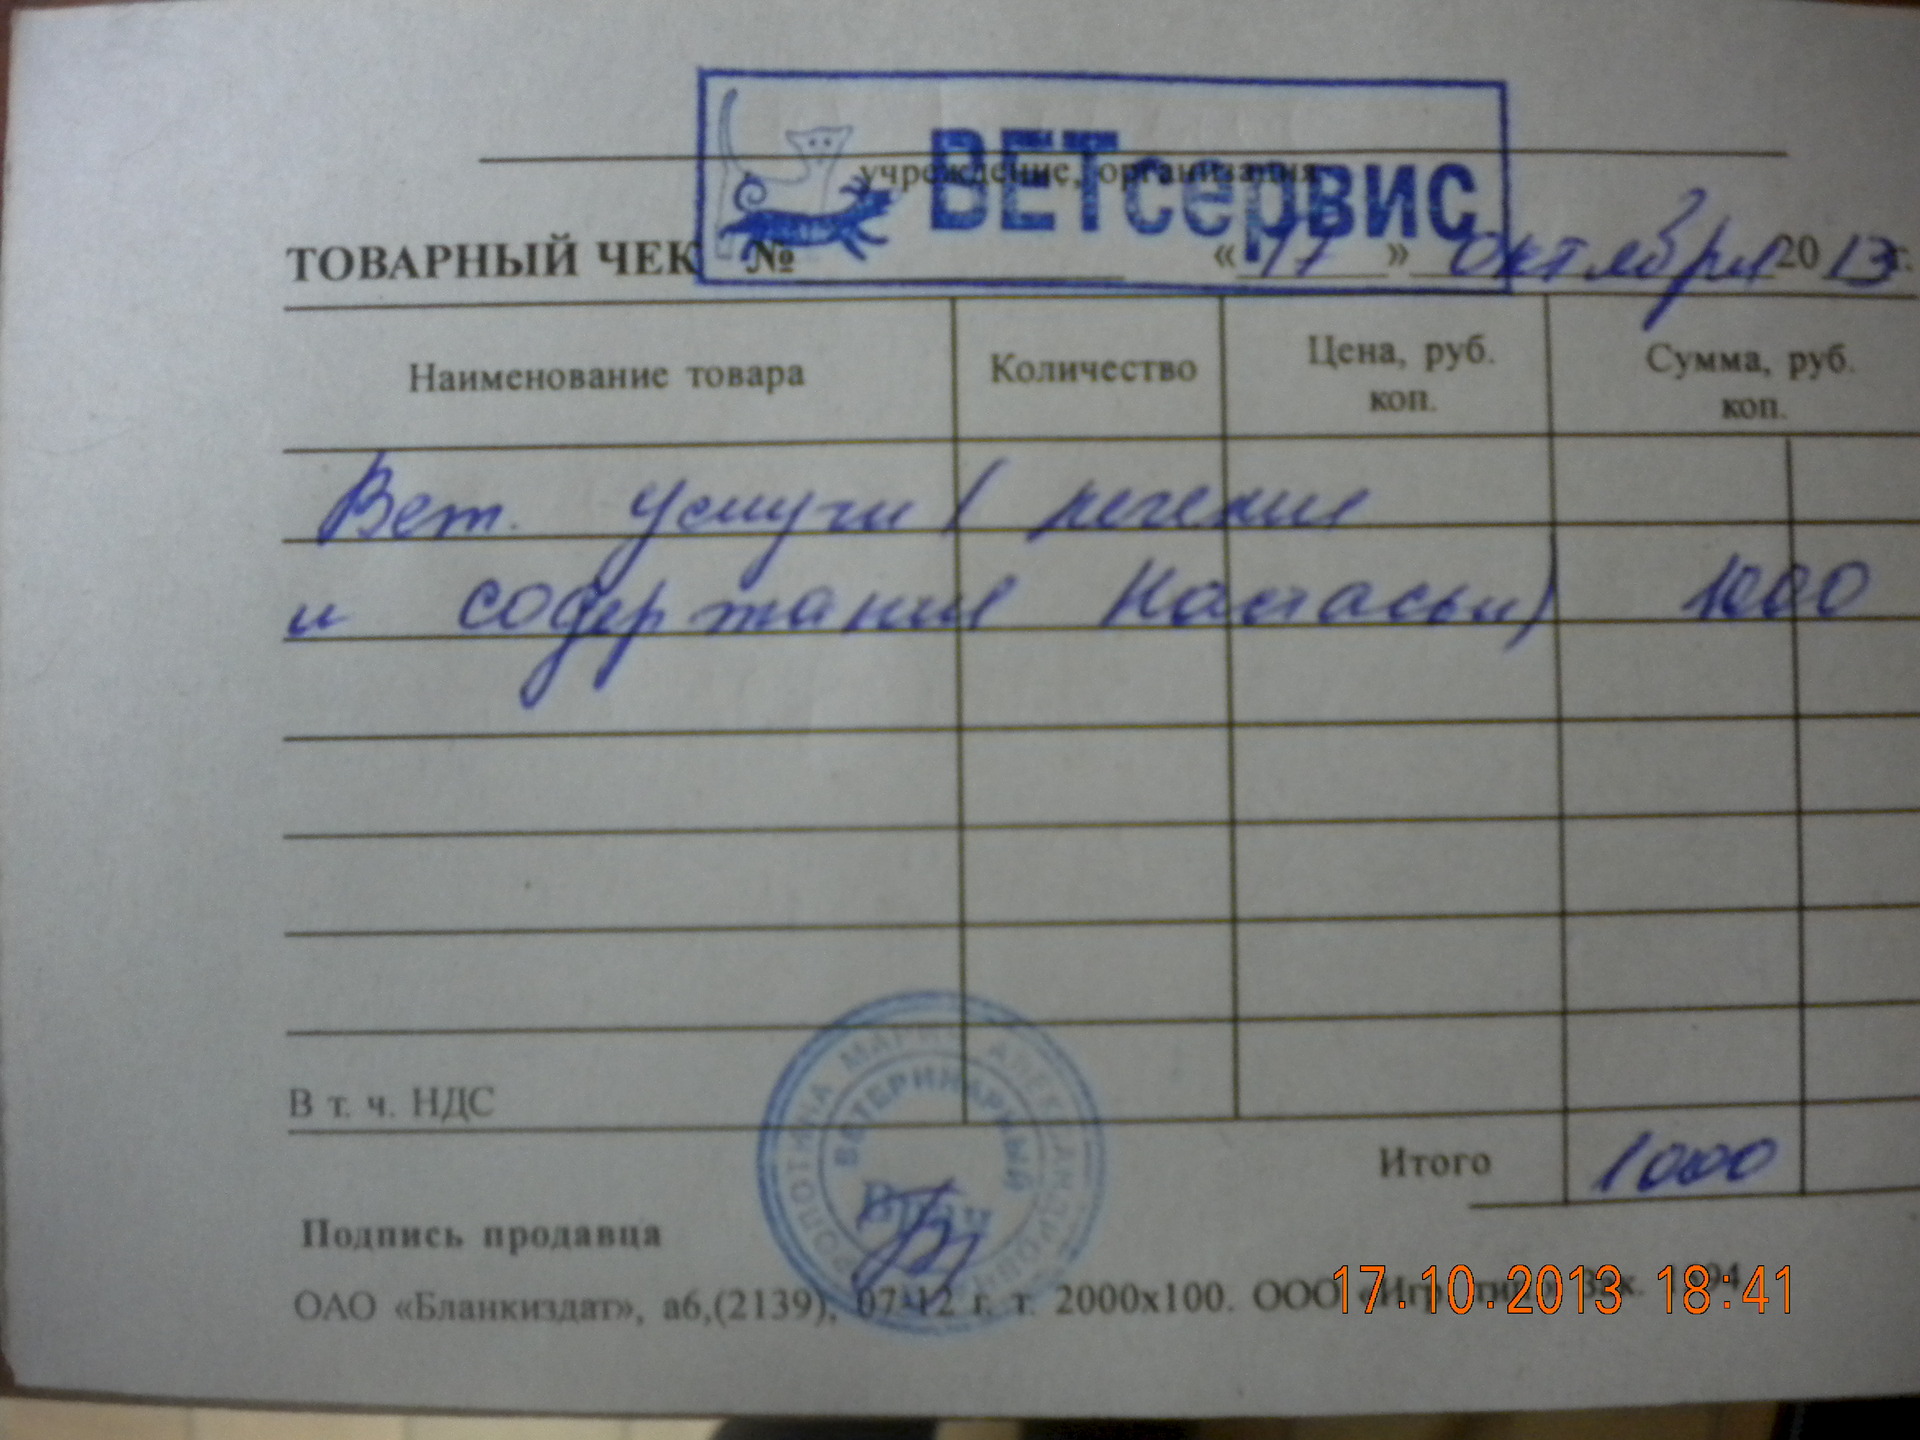 ВЕТсервис
учреждение, организация
ТОВАРНЫЙ ЧЕК № « 17 » октября 20 13 г.
Наименование товара Количество Цена, руб. коп. Сумма, руб. коп.
Вет. услуги ( лечение
и содержание Настасьи) 1000
В т. ч. НДС
Итого 1000
Подпись продавца
МАРИЯ АЛЕКСАНДРОВНА
ВЕТЕРИНАРНЫЙ
врач
ОАО «Бланкиздат», а6,(2139), 07-12 г. т. 2000х100. ООО
17.10.2013 18:41